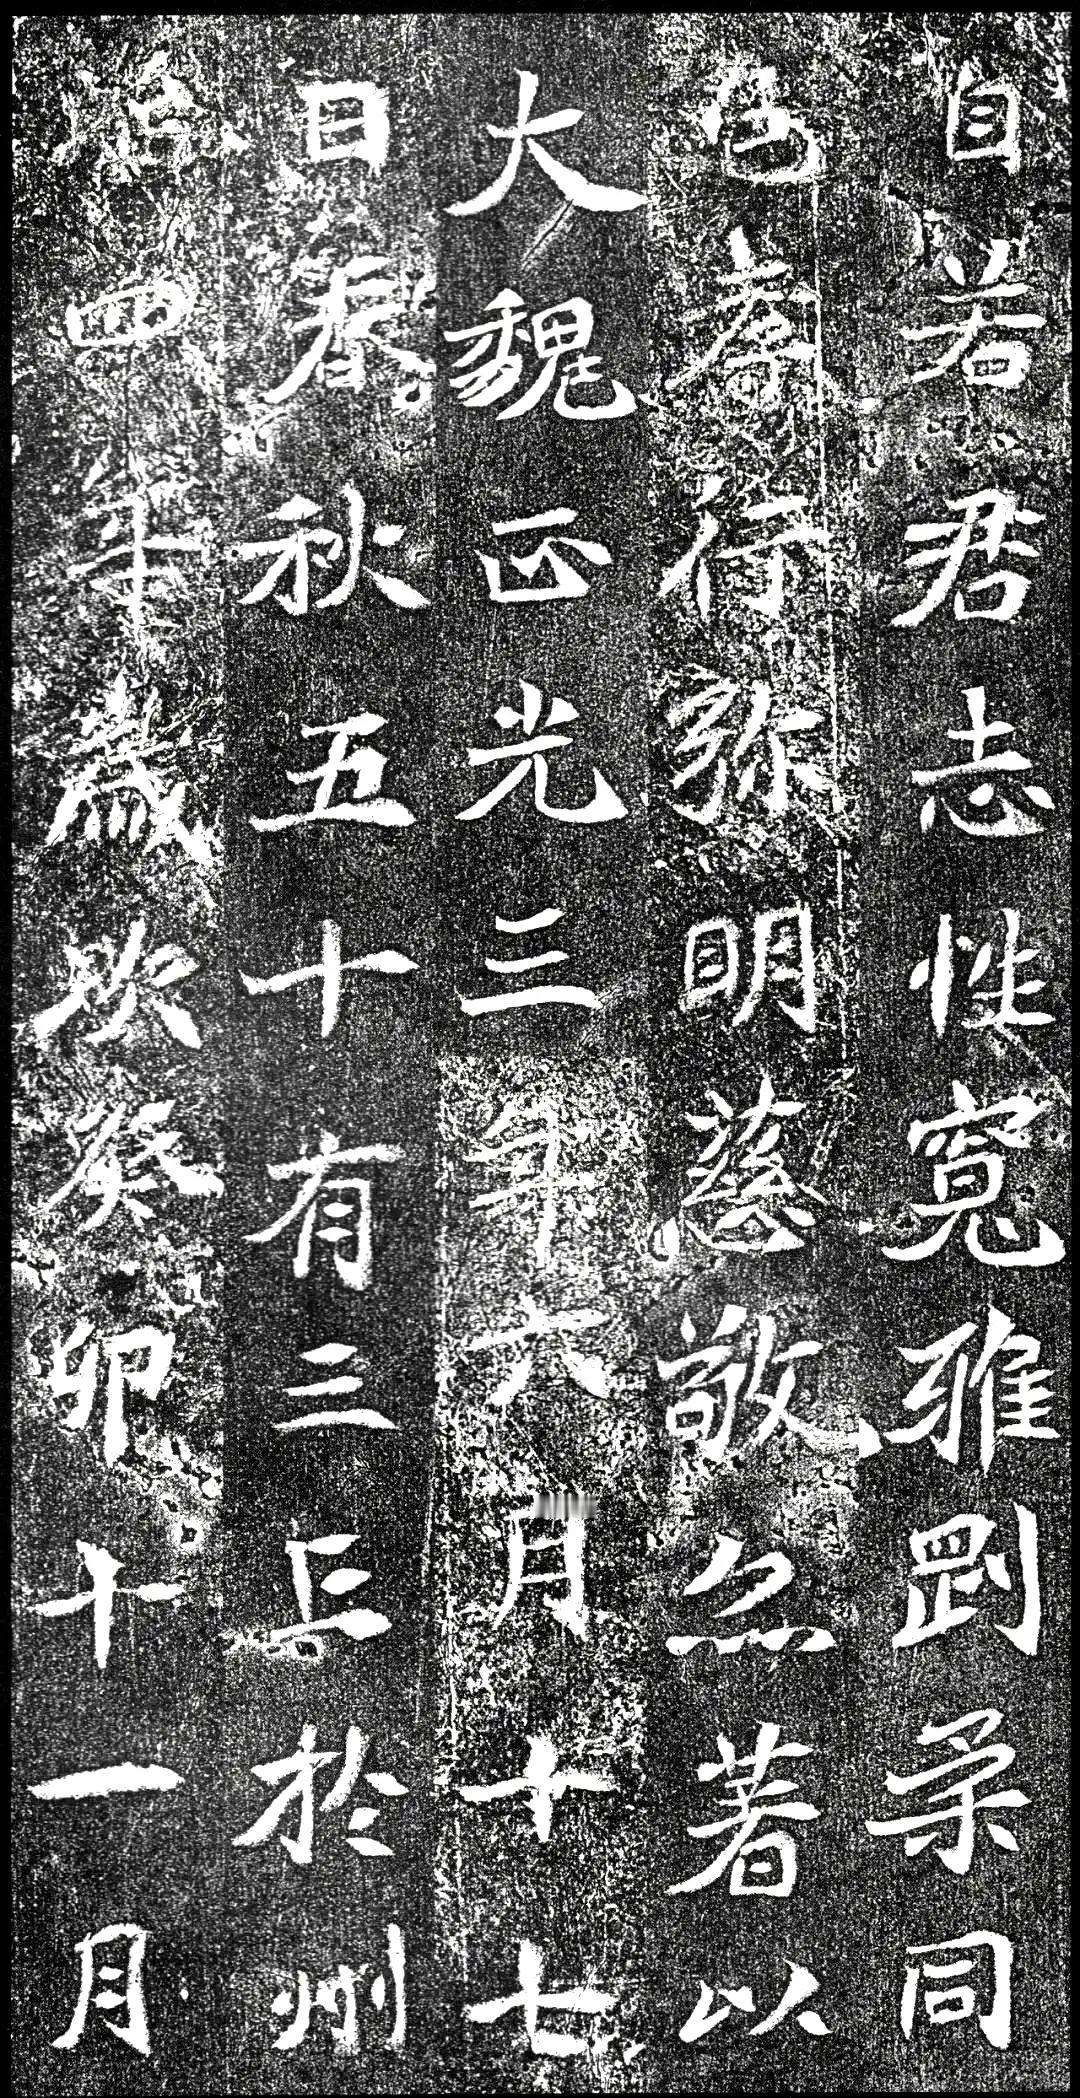 自若君志性寬雅剛柔同
色孝行弥明慈敬著以
大魏正光三年六月十七
日春秋五十有三於州
四年歲次癸卯十一月